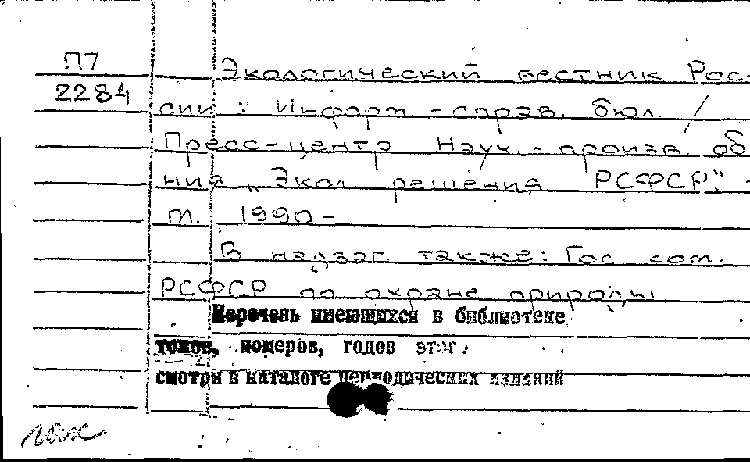 П7
2284
Экологический вестник Рос-
сии : Информ.-справ. бюл. /
Пресс-центр Науч.-произв. об
ния "Экол. решения РСФСР". -
М. 1990-
В надзаг. также: Гос. ком.
РСФСР по охране природы
Перечень имеющихся в библиотеке
томов, номеров, годов этог.
смотри в каталоге периодических изданий